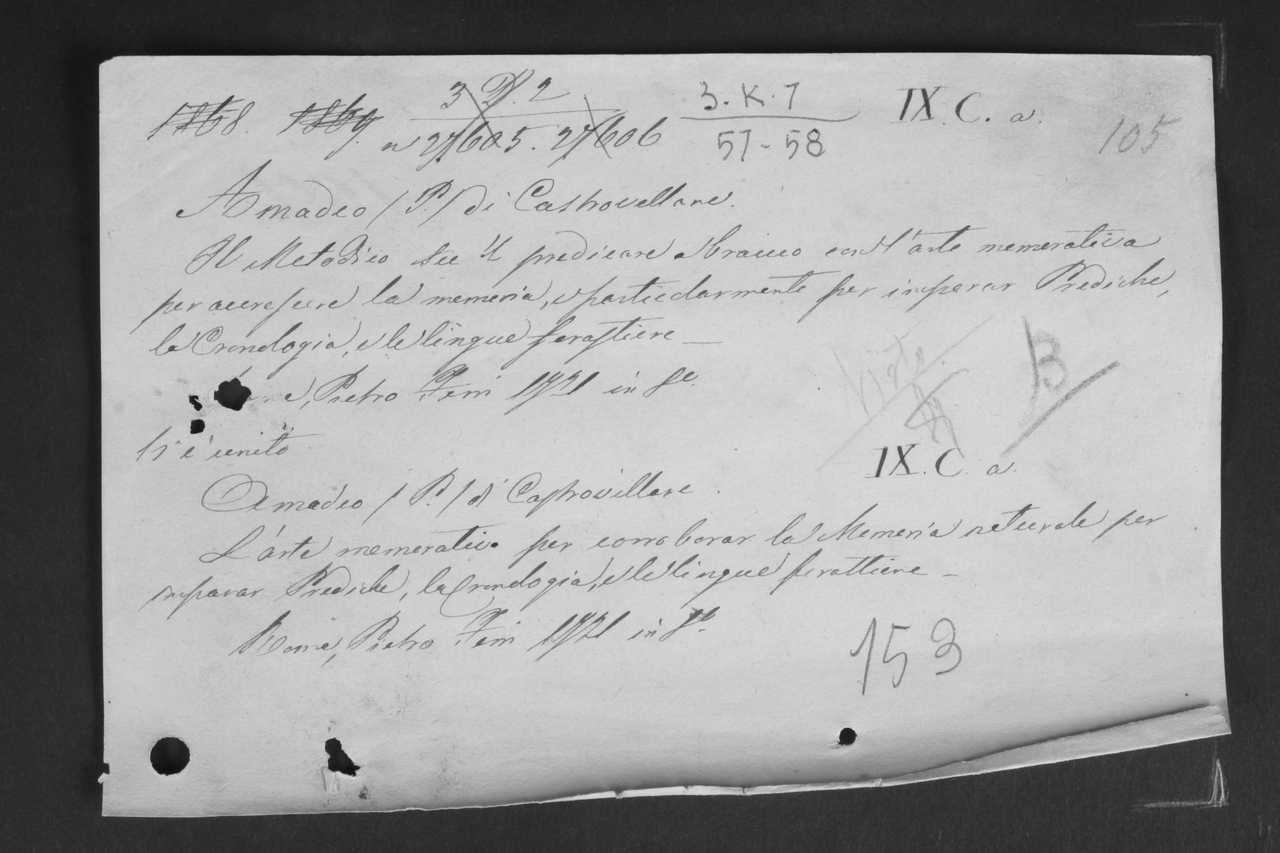 1768. 1769. 3 D. 2 3. K. 7 IX. C. a.
n 27605. 27606 57-58 105
Amadeo (P.) di Castrovellare.
Il Metodico su il predicare Ebraico con l'arte memorativa
per accrescere la memoria, e particolarmente per imparar Prediche,
la Cronologia, e le lingue forastiere —
Pietro Ferri 1721 in 8º.
Vi è unito
IX. C. a.
Amadeo (P.) di Castrovillare.
L'arte memorativa per corroborar la Memoria naturale per
imparar Prediche, la Cronologia, e le lingue forattiere —
Roma, Pietro Ferri 1721 in 8º.
153